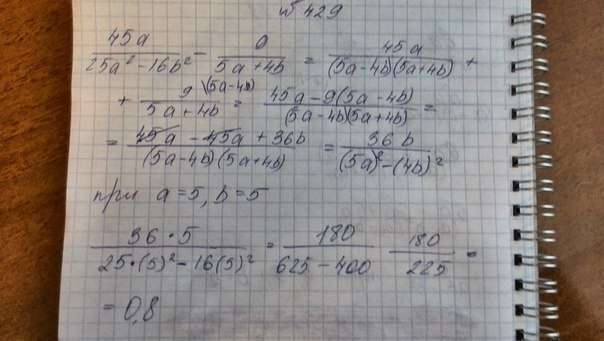 № 429
45a/(25a² - 16b²) - 9/(5a + 4b) = 45a/((5a-4b)(5a+4b)) +
+ 9 \(5a-4b)/(5a + 4b) = (45a - 9(5a - 4b))/((5a-4b)(5a+4b)) =
= (45a - 45a + 36b)/((5a-4b)(5a+4b)) = 36b/((5a)² - (4b)²)
при a = 5, b = 5
(36 · 5)/(25·(5)² - 16(5)²) = 180/(625 - 400) 180/225 =
= 0,8